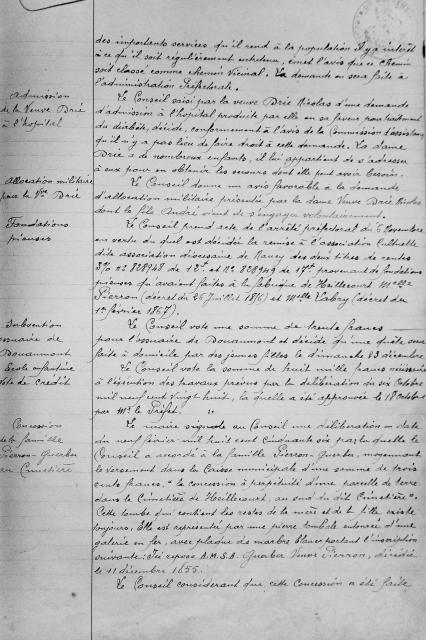 des importants services qu'il rend à la population il y a intérêt
à ce qu'il soit régulièrement entretenu, émet l'avis que ce chemin
soit classé comme chemin Vicinal. La demande en sera faite à
l'administration Préfectorale.
Admission
de la Veuve Drié
à l'hopital
Le Conseil saisi par la veuve Drié Nicolas d'une demande
d'admission à l'hôpital produite par elle en sa faveur pour traitement
du diabète, décide, conformément à l'avis de la Commission d'assistance
qu'il n'y a pas lieu de faire droit à cette demande. La dame
Drié a de nombreux enfants, il lui appartient de s'adresser
à eux pour en obtenir les secours dont elle peut avoir besoin.
Allocation militaire
pour la Vve Drié
Le Conseil donne un avis favorable à la demande
d'allocation militaire présentée par la dame Veuve Drié Nicolas
dont le fils André vient de s'engager volontairement.
Fondations
pieuses
Le Conseil prend acte de l'arrêté préfectoral du 5 Novembre
en vertu duquel est décidé la remise à l'association Cultuelle
dite association diocésaine de Nancy des deux titres de rentes
3% n° 828948 de 12f. et N° 828949 de 17f. provenant de fondations
pieuses qu'avaient faites à la fabrique de Heillecourt Melle
Pierron (décret du 26 Juillet 1876) et Melle Labry (décret du
1er février 1867).
Subvention
ossuaire de
Douaumont
Le Conseil vote une somme de trente francs
pour l'ossuaire de Douaumont et décide qu'une quête sera
faite à domicile par des jeunes filles le dimanche 23 décembre
Ecole enfantine
Vote de crédit
Le Conseil vote la somme de huit mille francs nécessaire
à l'exécution des travaux prévus par la délibération du six Octobre
mil neuf cent vingt huit, la quelle a été approuvée le 18 octobre
par Mr le Préfet.
Concession
de la famille
Pierron-Guerber
au Cimetière
Le maire signale au Conseil une délibération en date
du neuf février mil huit cent cinquante six par laquelle le
Conseil a accordé à la famille Pierron-Guerber, moyennant
le versement dans la Caisse municipale d'une somme de trois
cents francs, "la concession à perpétuité d'une parcelle de terre
dans le Cimetière de Heillecourt, au sud du dit Cimetière".
Cette tombe qui contient les restes de la mère et de la fille existe
toujours. Elle est représentée par une pierre tombale entourée d'une
galerie en fer, avec plaque de marbre blanc portant l'inscription
suivante: Ici repose A.M.S.B. Guerber Veuve Pierron, décédée
le 11 décembre 1855.
Le Conseil considérant que cette Concession a été faite